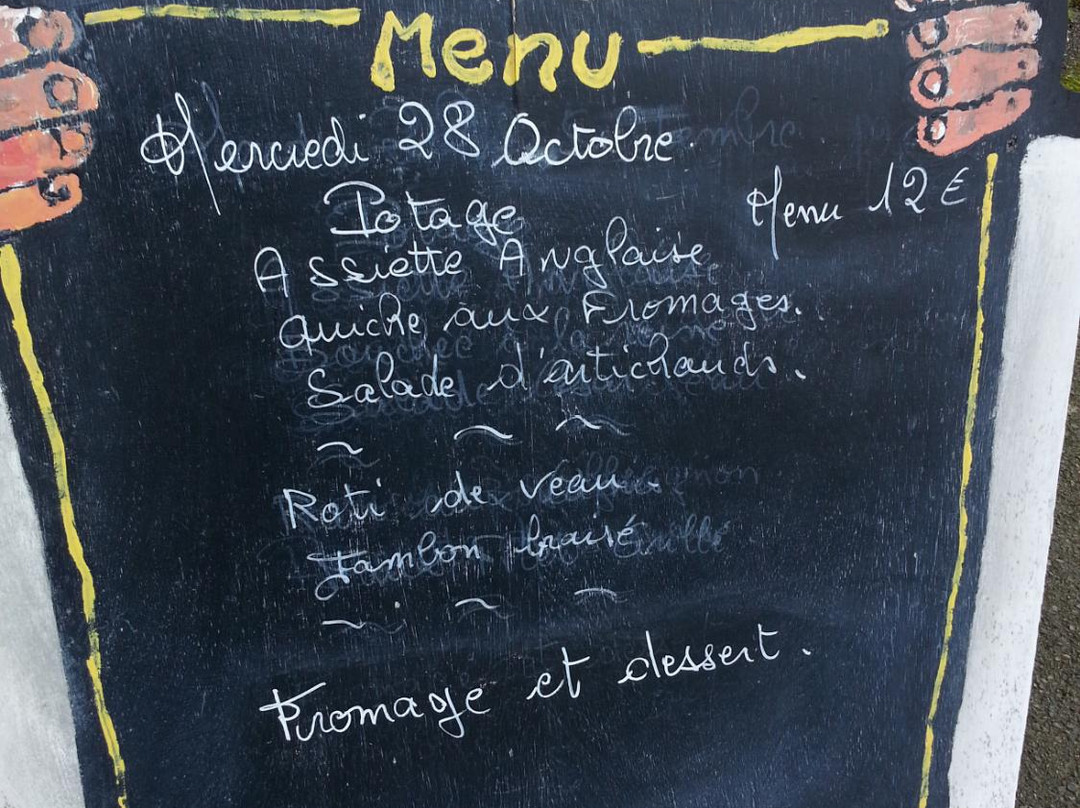 Menu
Mercredi 28 Octobre.
Menu 12€
Potage
Assiette Anglaise
Quiche aux Fromages.
Salade d'artichauds.
~ ~ ~
Roti de veau.
Jambon braisé
~ ~ ~
Fromage et dessert.